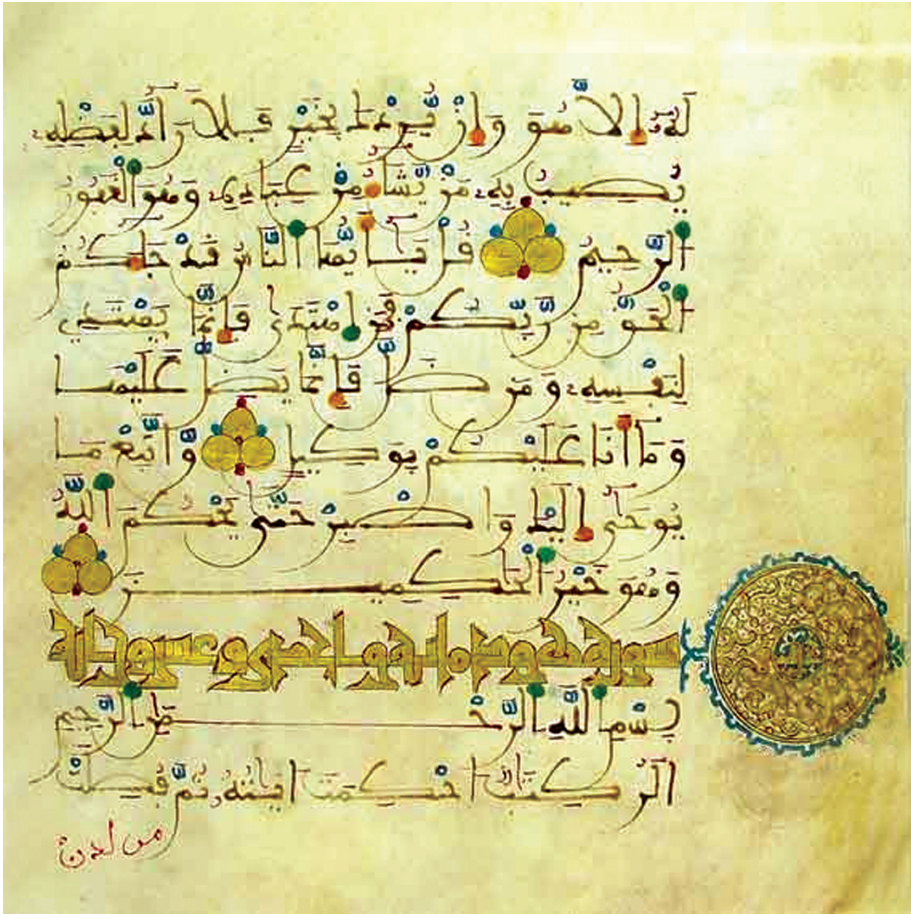 لَهُۥ إِلَّا هُوَ وَإِنْ يُّرِدْكَ بِخَيْرٍ فَلَا رَآدَّ لِفَضْلِهِۦ
يُصِيبُ بِهِۦ مَنْ يَّشَآءُ مِنْ عِبَادِهِۦ وَهُوَ الْغَفُورُ
الرَّحِيمُ قُلْ يَٰٓأَيُّهَا النَّاسُ قَدْ جَآءَكُمُ
الْحَقُّ مِن رَّبِّكُمْ فَمَنِ اهْتَدَىٰ فَإِنَّمَا يَهْتَدِي
لِنَفْسِهِۦ وَمَن ضَلَّ فَإِنَّمَا يَضِلُّ عَلَيْهَا
وَمَآ أَنَا عَلَيْكُم بِوَكِيلٍ وَّاتَّبِعْ مَا
يُوحَىٰٓ إِلَيْكَ وَاصْبِرْ حَتَّىٰ يَحْكُمَ اللَّهُ
وَهُوَ خَيْرُ الْحَٰكِمِينَ
سورة هود مائة وإحدى وعشرون آية
بِسْمِ اللَّهِ الرَّحْمَٰنِ الرَّحِيمِ
الٓر كِتَٰبٌ احْكِمَتَ ايَٰتُهُۥ ثُمَّ فُصِّلَتْ
من لدن